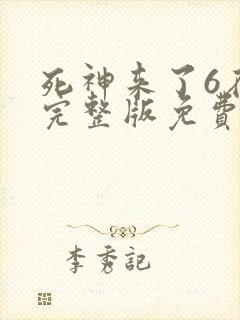 死神来了6在
完整版免費
李秀記